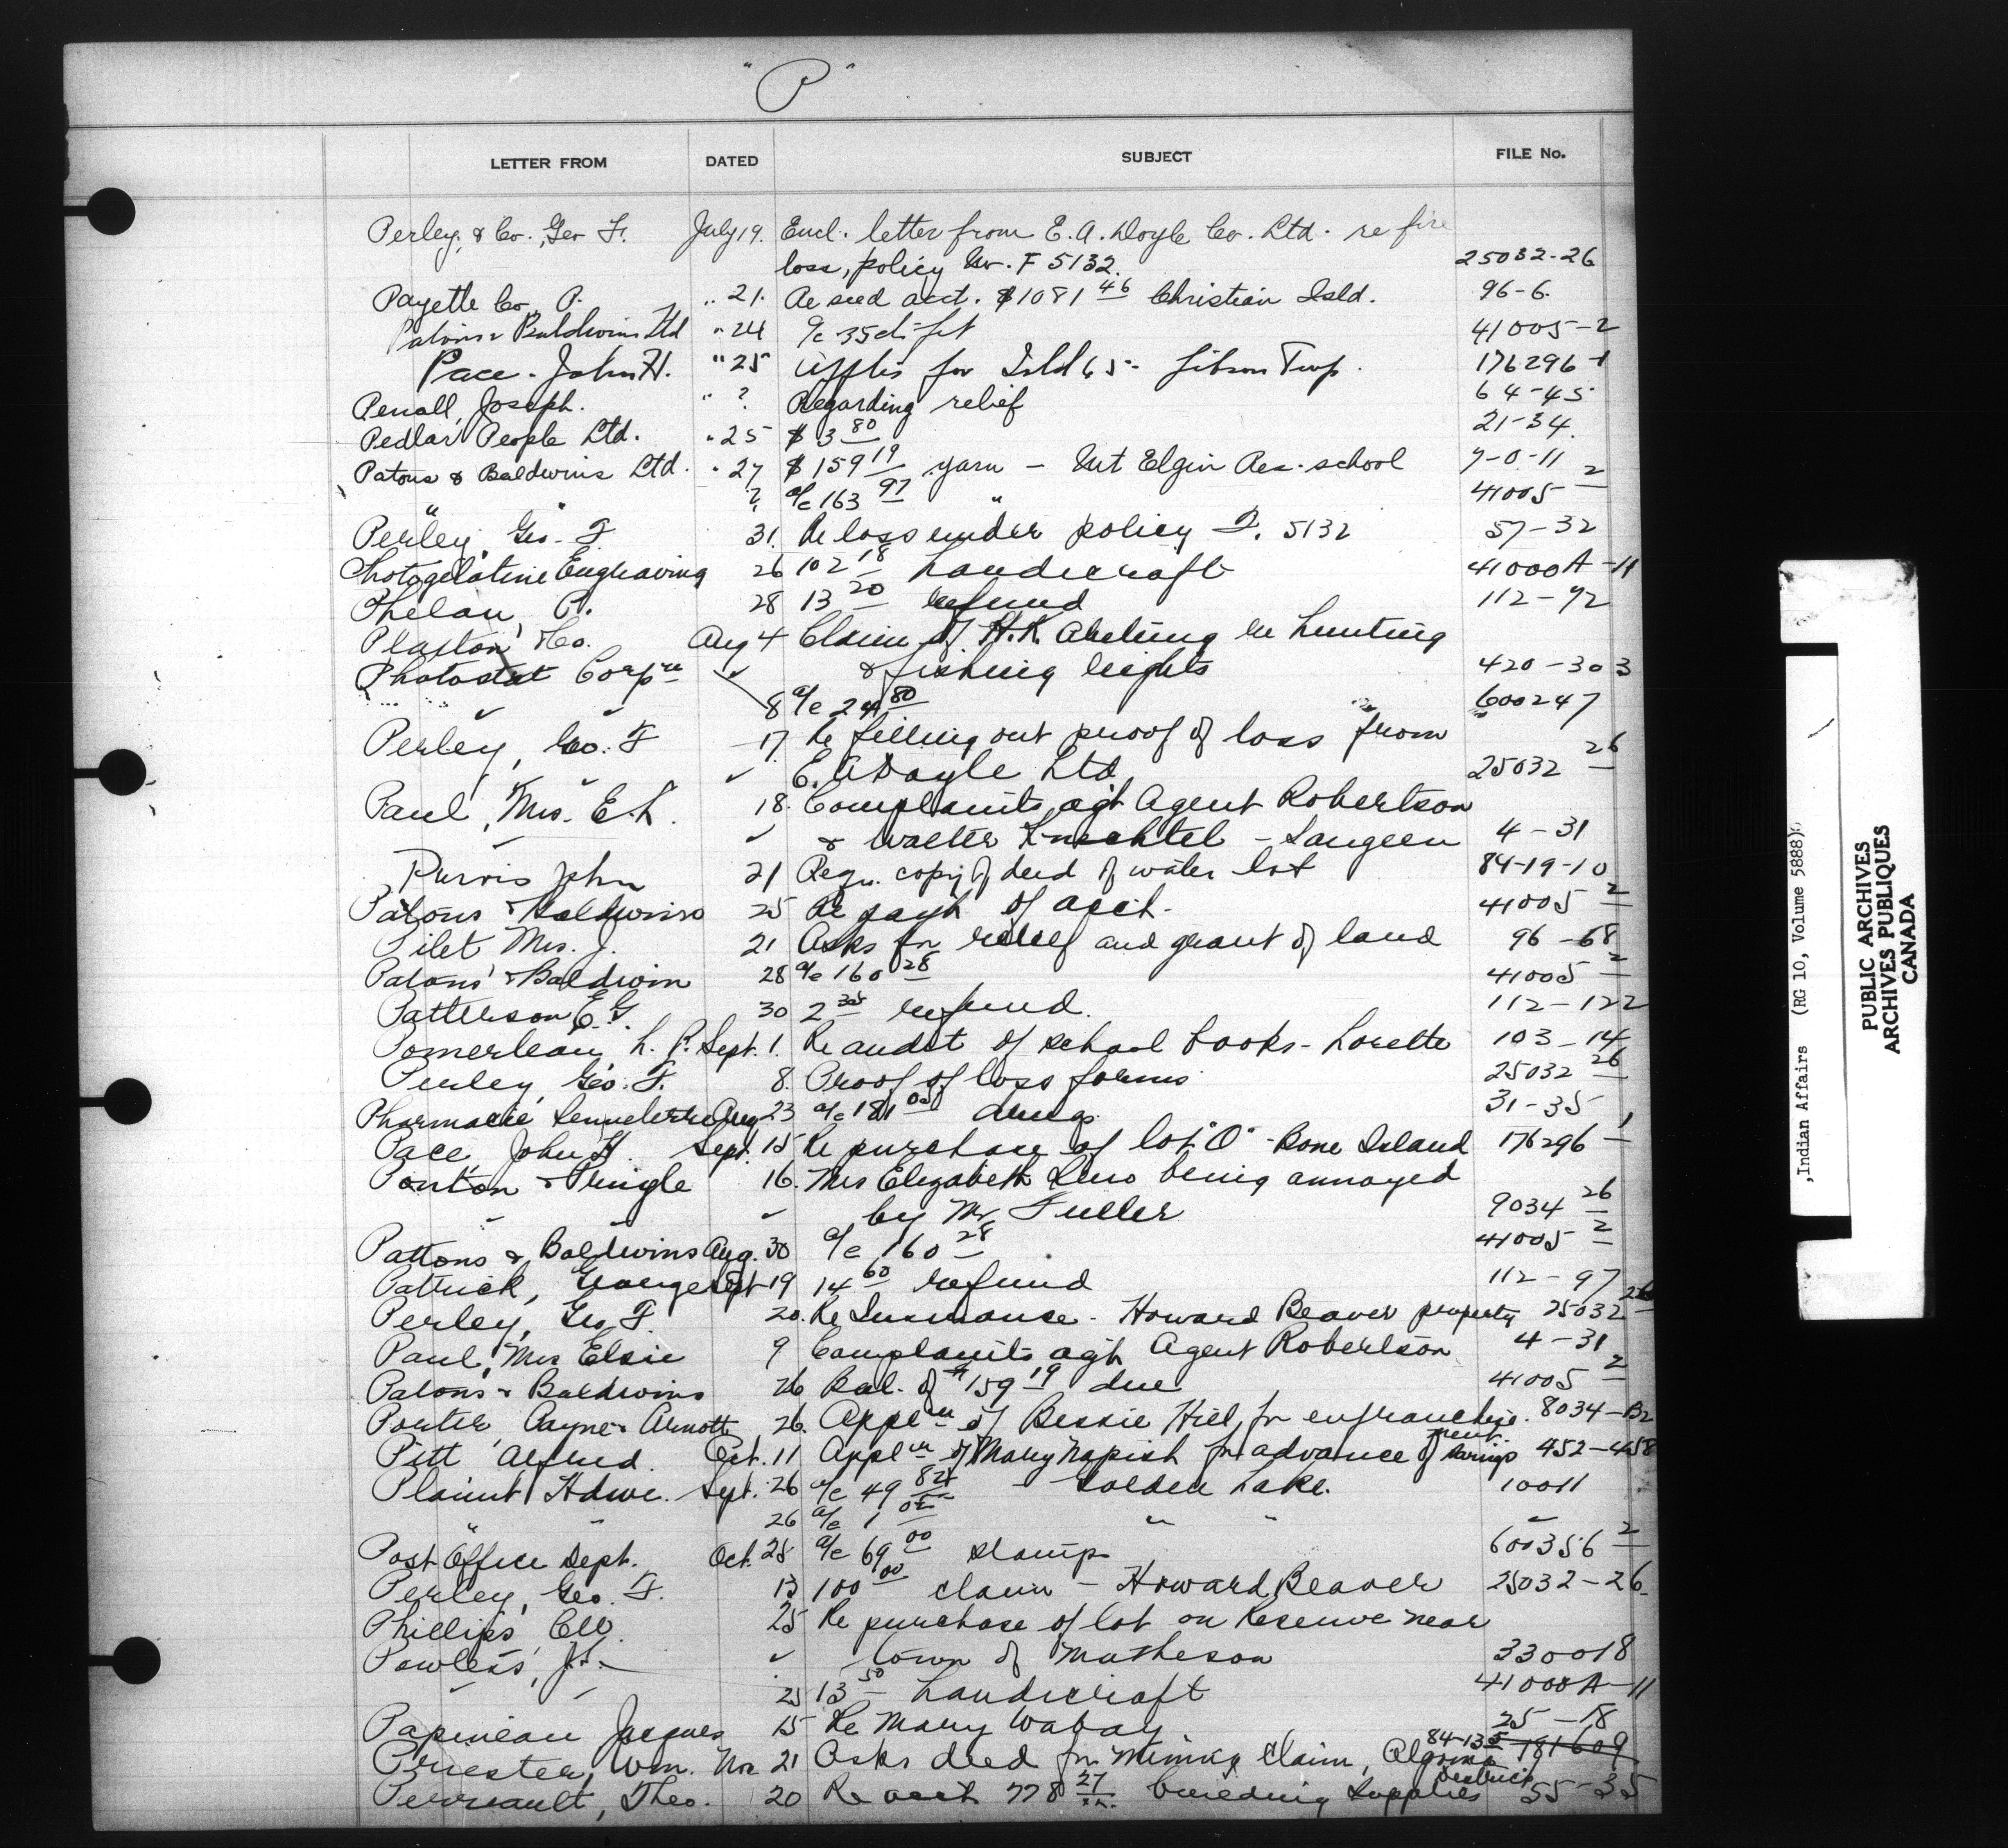 "P"
LETTER FROM DATED SUBJECT FILE No.
Perley, & Co., Geo F. July 19. Encl. letter from E. A. Doyle Co. Ltd. re fire
loss, policy No. F 5132. 25032-26
Payette Co., P. " 21. Re seed acct. $1081 46 Christian Isld. 96-6.
Patons & Baldwins Ltd " 24 a/c 41005-2
Pace - John H. " 25 Applies for Isld 65 - Gibson Twp. 176296-1
Penall, Joseph. " ? Regarding relief 64-45
Pedlar People Ltd. " 25 $ 3 80 21-34.
Patons & Baldwins Ltd. " 27 $ 159 19 yarn - Mt Elgin Res. school 7-0-11
" " ? a/c 163 97 " 41005 2
Perley, Geo. F 31. Re loss under policy F. 5132 57-32
Photogelatine Engraving 26 102 18 handicraft 41000A-11
Phelan, P. 28 13 20 refund 112-92
Plaxton & Co. Aug 4 Claim of H.K. re hunting
Photostat Corpn ✓ & fishing rights 420-303
8 a/c 24 80 600247
Perley, Geo. F 17. Re filling out proof of loss from
✓ E. A Doyle Ltd 25032 26
Paul, Mrs. E. L. 18. Complaints agt Agent Robertson
✓ & Walter Knechtel - Saugeen 4-31
Purvis John 21 Requ. copy of deed of water lot 84-19-10
Patons & Baldwins 25 Re payt of acct. 41005 2
Pilet Mrs. J. 21 Asks for relief and grant of land 96-68
Patons & Baldwin 28 a/c 160 28 41005 2
Patterson E. G. 30 2 35 refund. 112-122
Pomerleau, L. P. Sept. 1. Re audit of school books - Lorette 103-14
Perley, Geo. F. 8. Proof of loss forms 25032 26
Pharmacie Aug 23 a/c 181 05 drugs 31-35
Pace John H. Sept. 15 Re purchase of lot "O" - Bone Island 176296-1
Ponton & Pringle 16. Mrs Elizabeth being annoyed
✓ by Mr Fuller 9034 26
Pattons & Baldwins Aug. 30 a/c 160 28 41005 2
Patrick, George Sept 19 14 60 refund 112-97
Perley, Geo F. 20. Re Insurance - Howard Beaver property 25032 26
Paul, Mrs Elsie 9 Complaints agt Agent Robertson 4-31
Patons & Baldwins 26 Bal. of $159 19 due 41005 2
Porter, Payne & Arnott 26. Appln of Bessie Hill, for enfranchise-ment. 8034-B2
Pitt Alfred. Oct. 11 Appln of Mary Napish for advance of savings 452-458
Plaunt Hdwe. Sept. 26 a/c 49 84 Golden Lake. 10011
" " 26 a/c 1 05 " " "
Post Office Dept. Oct. 25 a/c 69 00 stamps 600356 2
Perley, Geo. F. 13 100 00 claim - Howard Beaver 25032-26.
Phillips, C.W. 25 Re purchase of lot on Reserve near
Powless, J. ✓ town of Matheson 330018
25 13 50 handicraft 41000A-11
Papineau Jacques 15 Re Mary Wabay. 25-18
Priester, Wm. Nov 21 Asks deed for Mining Claim, Algoma District 84-13 5 181609
Perreault, Theo. 20 Re acct 778 27 building supplies 55-35
,Indian Affairs (RG 10, Volume 5888)
PUBLIC ARCHIVES
ARCHIVES PUBLIQUES
CANADA